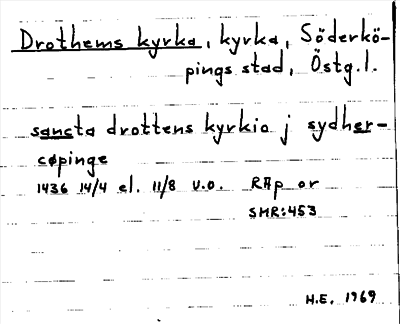 Drothems kyrka, kyrka, Söderkö-
pings stad, Östg.l.
sancta drottens kyrkio j sydher-
cøpinge
1436 14/4 el. 11/8 U.O. RAp or
SMR:453
H.E. 1969